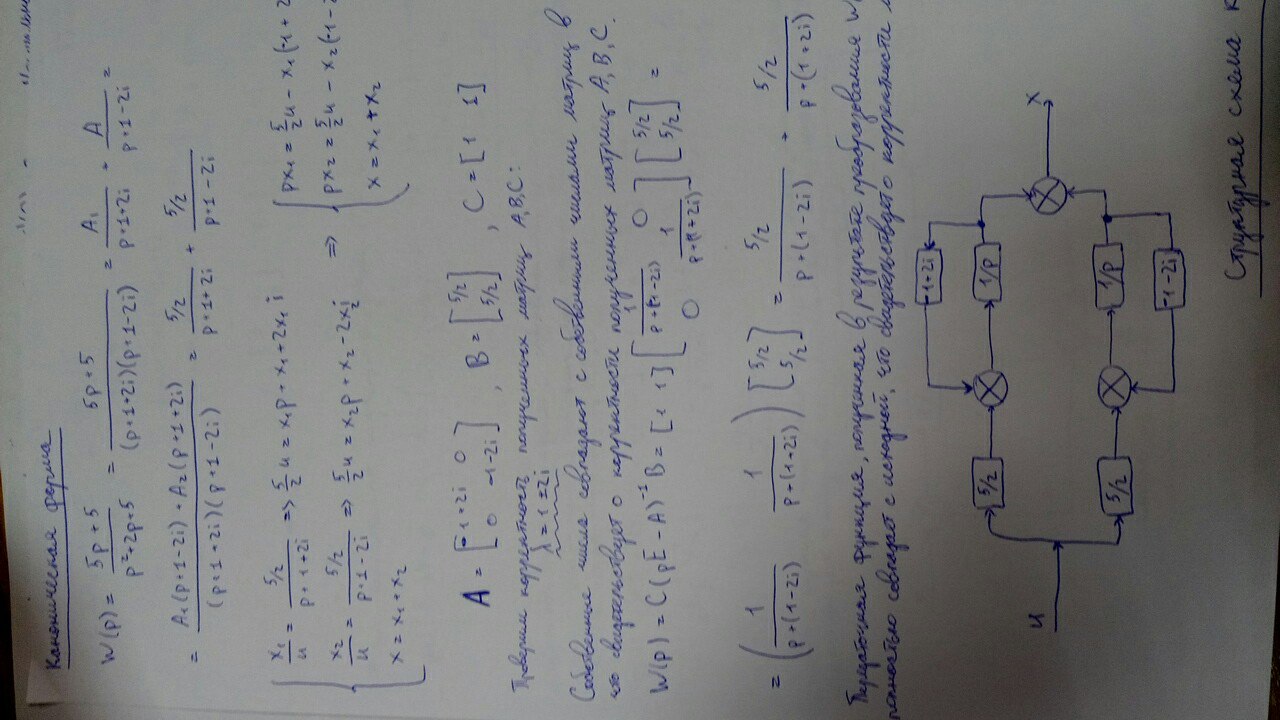 Каноническая форма
W(p) = (5p+5)/(p²+2p+5) = (5p+5)/((p+1+2i)(p+1-2i)) = A₁/(p+1+2i) + A/(p+1-2i) =
= (A₁(p+1-2i) + A₂(p+1+2i))/((p+1+2i)(p+1-2i)) = (5/2)/(p+1+2i) + (5/2)/(p+1-2i)
x₁/u = (5/2)/(p+1+2i) => 5/2 u = x₁p + x₁ + 2x₁i
x₂/u = (5/2)/(p+1-2i) => 5/2 u = x₂p + x₂ - 2x₂i
x = x₁ + x₂
=>
px₁ = 5/2 u - x₁(-1+2
px₂ = 5/2 u - x₂(-1-2
x = x₁ + x₂
A = [-1+2i 0; 0 -1-2i], B = [5/2; 5/2], C = [1 1]
Проверим корректность полученных матриц A,B,C:
λ = 1±2i
Собственные числа совпадают с собственными числами матриц в
что свидетельствует о корректности полученных матриц A, B, C.
W(p) = C(pE-A)⁻¹B = [1 1] [1/(p+(1-2i)) 0; 0 1/(p+(1+2i))] [5/2; 5/2] =
= (1/(p+(1-2i)) 1/(p+(1+2i))) [5/2; 5/2] = (5/2)/(p+(1-2i)) + (5/2)/(p+(1+2i))
Передаточная функция, полученная в результате преобразования W
полностью совпадает с исходной, что свидетельствует о корректности
-1+2i
5/2
1/p
u
x
5/2
1/p
-1-2i
Структурная схема к